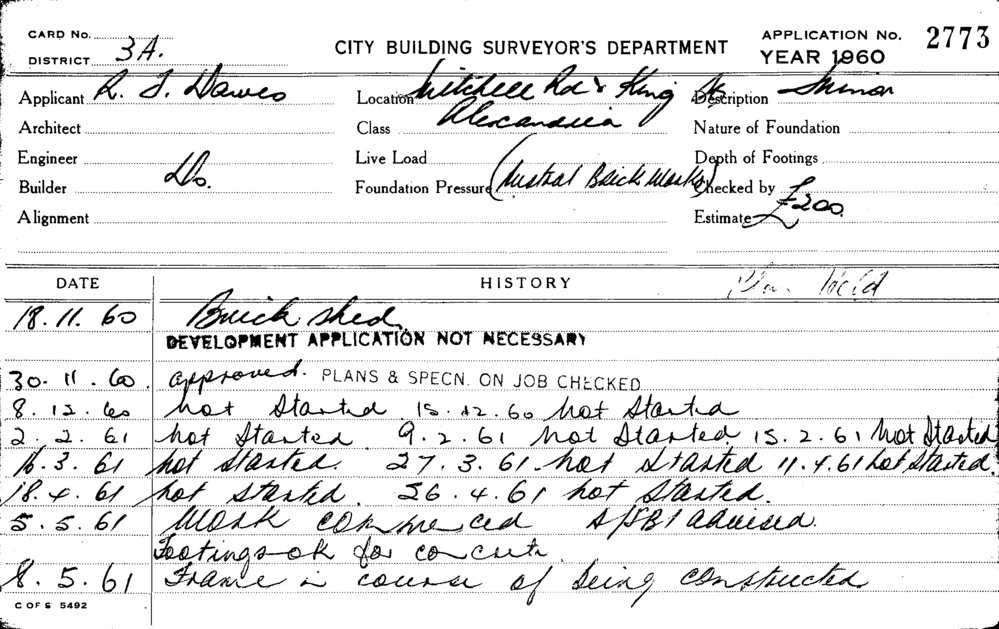 CARD No.
DISTRICT 3A.
CITY BUILDING SURVEYOR'S DEPARTMENT
APPLICATION No. 2773
YEAR 1960
Applicant R. J. Dawes Location Mitchell Rd & King St Description Minor
Architect Class Alexandria Nature of Foundation
Engineer Live Load Depth of Footings
Builder Do. Foundation Pressure (Austral Brick Works) Checked by
Alignment Estimate £200.
DATE HISTORY Plan Held
18.11.60 Brick shed.
DEVELOPMENT APPLICATION NOT NECESSARY
30.11.60. approved. PLANS & SPECN. ON JOB CHECKED
8.12.60 not Started 15.12.60 Not Started
2.2.61 not Started 9.2.61 Not Started 15.2.61 Not Started
16.3.61 not Started. 27.3.61 - not Started 11.4.61 not Started.
18.4.61 not Started. 26.4.61 not Started.
5.5.61 Work commenced advised.
Footings ok for concrete.
8.5.61 Frame in course of being constructed
C OF S 5492